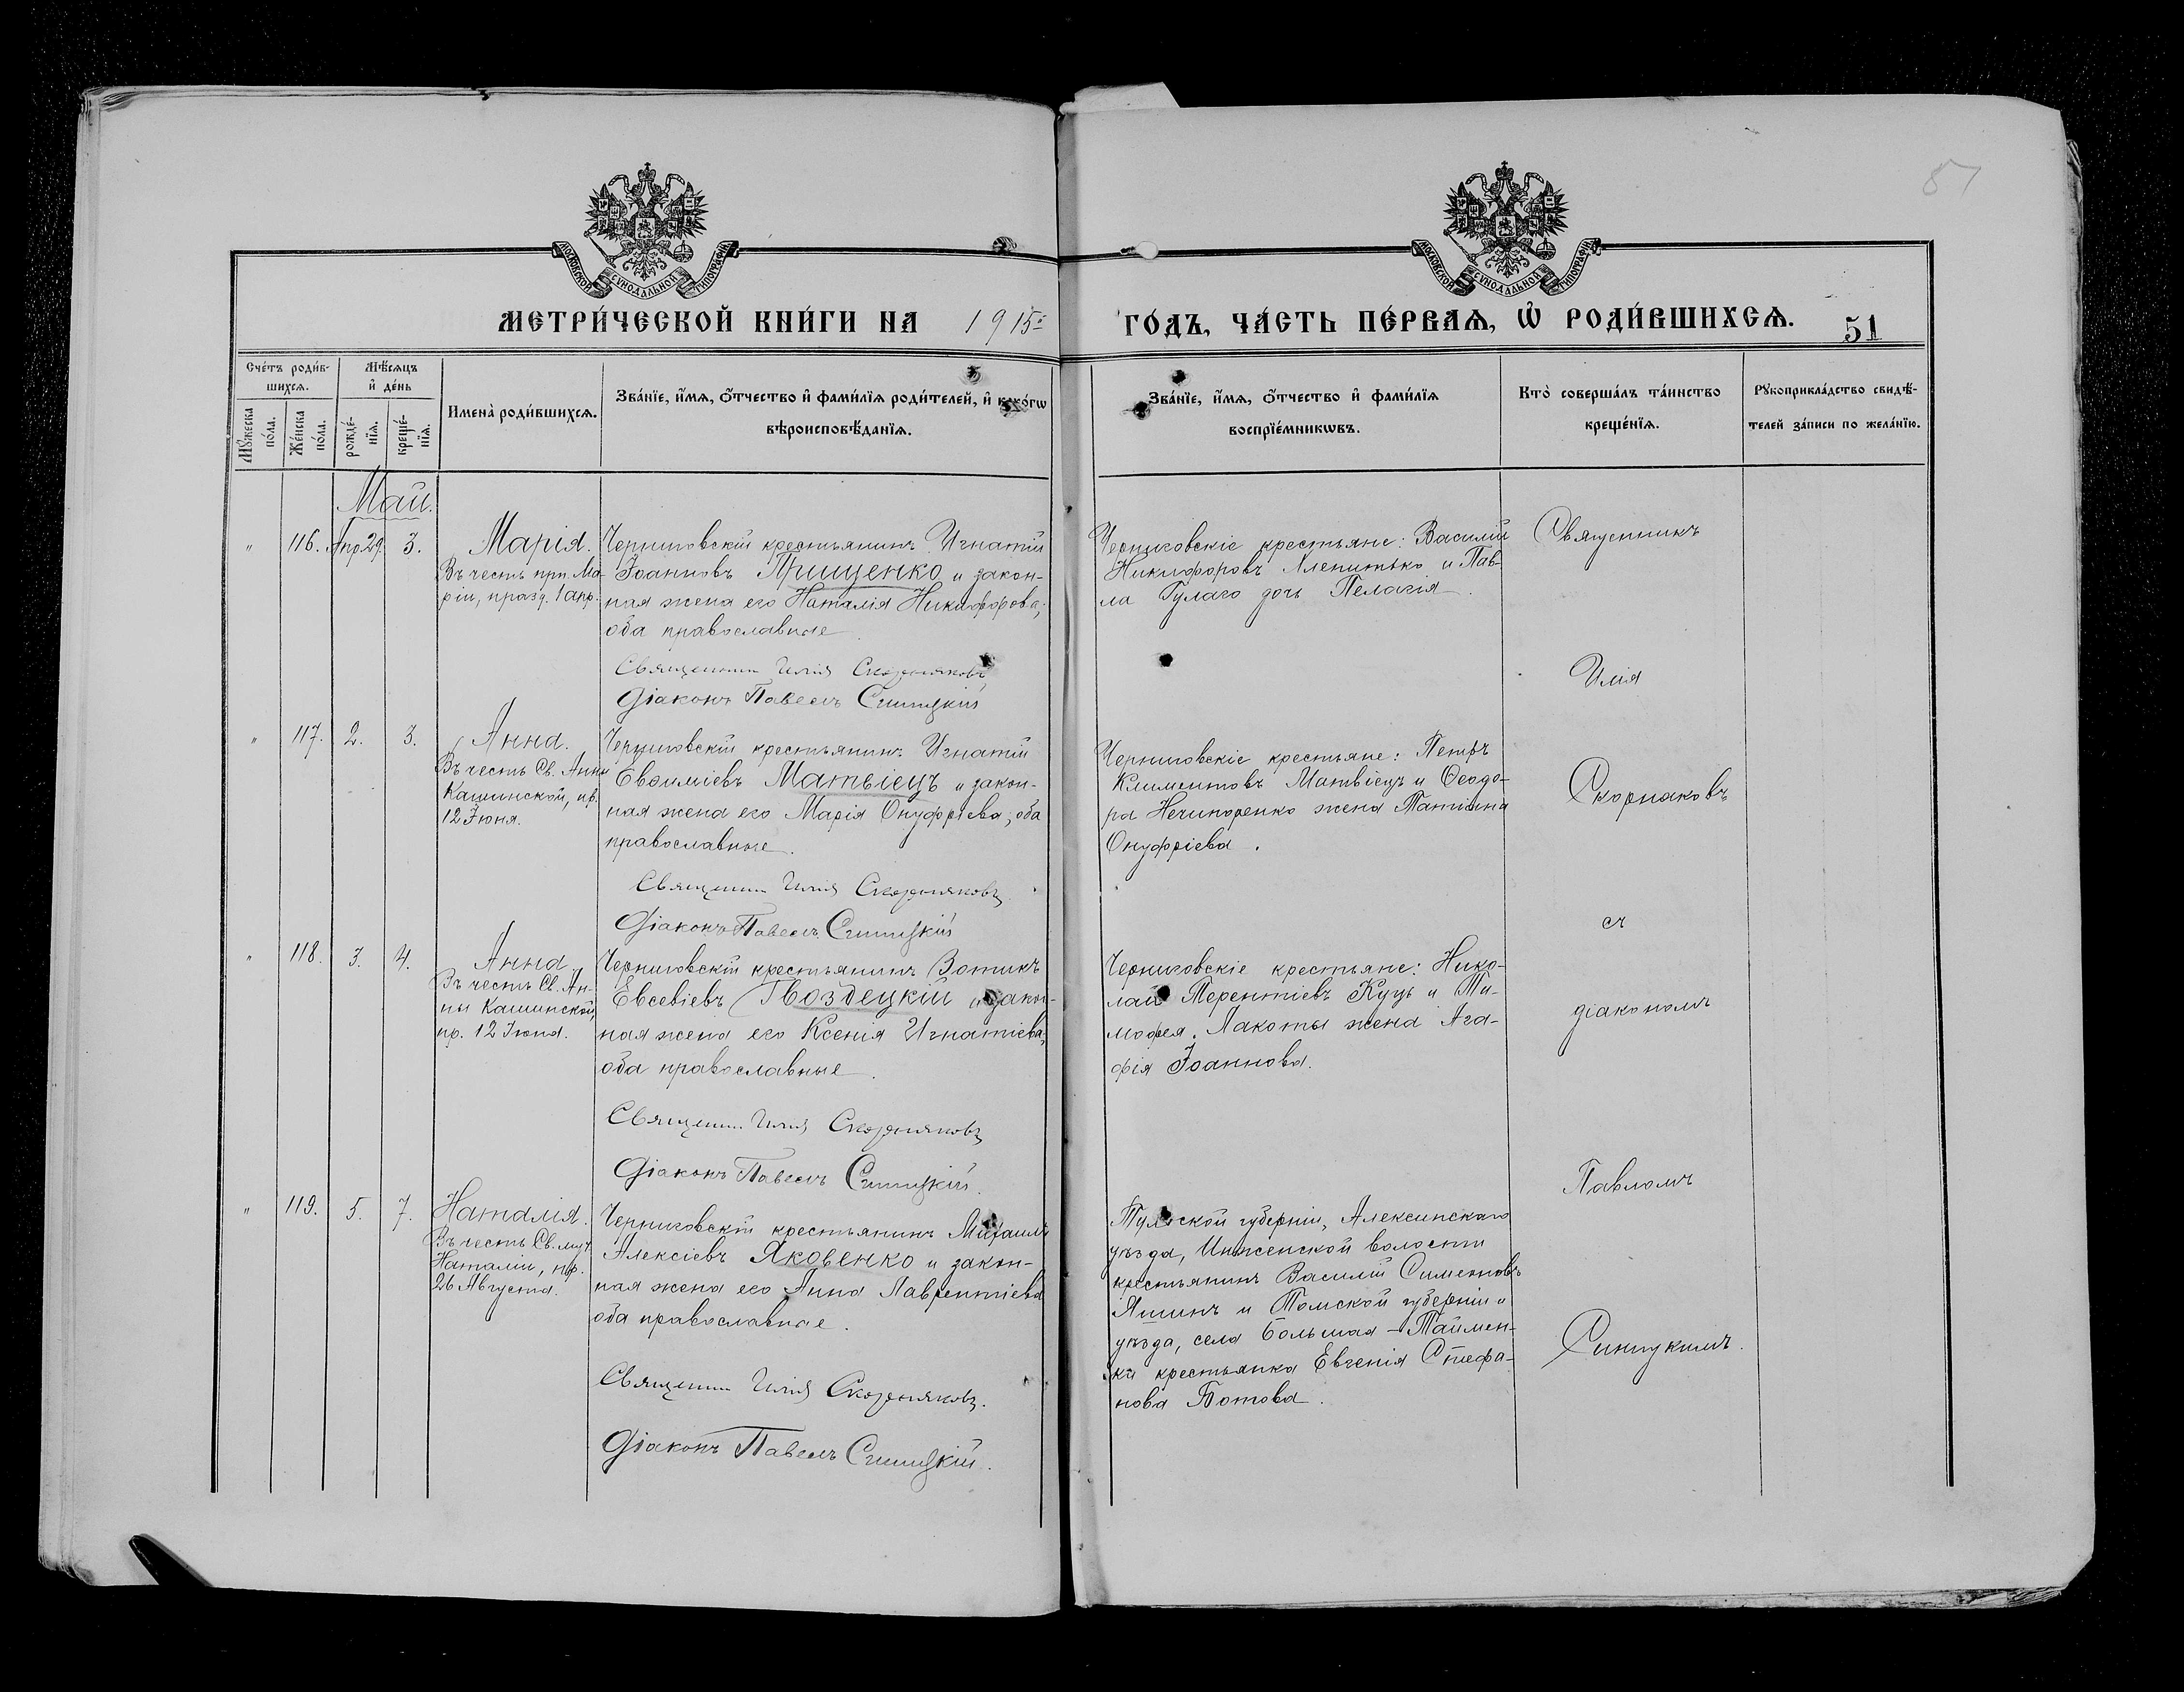 51
МОСКОВСКОЙ СѴНОДАЛЬНОЙ ТИПОГРАФІИ
МОСКОВСКОЙ СѴНОДАЛЬНОЙ ТИПОГРАФІИ
МЕТРИ́ЧЕСКОЙ КНИ́ГИ НА 1915 ГО́ДЪ, ЧА́СТЬ ПЕ́РВАѦ, Ѡ҆ РОДИ́ВШИХСѦ. 51
Сче́тъ роди́в-
шихсѧ.
Мꙋ́жеска
по́ла.
Же́нска
по́ла.
Мѣ́сѧцъ
и҆ де́нь
рожде́-
нїѧ.
креще́-
нїѧ.
Имена̀ роди́вшихсѧ.
Зва́нїе, и҆́мѧ, ѻ҆́тчество и҆ фами́лїѧ роди́телей, и҆ како́гѡ
вѣроисповѣ́данїѧ.
Зва́нїе, и҆́мѧ, ѻ҆́тчество и҆ фами́лїѧ
воспрїе́мникѡвъ.
Кто̀ соверша́лъ та́инство
креще́нїѧ.
Рꙋкоприкла́дство свидѣ́-
телей за́писи по жела́нїю.
Май.
" 116. Апр. 29. 3. Марія.
Въ честь прп. Ма-
ріи, празд. 1 апр.
Черниговскій крестьянинъ Игнатій
Іоанновъ Прищенко и закон-
ная жена его Наталія Никифорова,
оба православные.
Священник Илія Скорняковъ
Діаконъ Павелъ Синицкій
Черниговскіе крестьяне: Василій
Никифоровъ и Пав-
ла Гулаго дочь Пелагія.
Священникъ
Илія
" 117. 2. 3. Анна.
Въ честь Св. Анны
Кашинской, пр.
12 Іюня.
Черниговскій крестьянинъ Игнатій
Евѳиміевъ Матвіецъ и закон-
ная жена его Марія Онуфріева, оба
православные.
Священник Илія Скорняковъ.
Діаконъ Павелъ Синицкій
Черниговскіе крестьяне: Петръ
Климентовъ Матвіецъ и Ѳеодо-
ра Нечипоренко жена Татіана
Онуфріева.
Скорняковъ
съ
" 118. 3. 4. Анна.
Въ честь Св. Ан-
ны Кашинской,
пр. 12 Іюня.
Черниговскій крестьянинъ Зотикъ
Евсевіевъ Гвоздецкій и закон-
ная жена его Ксенія Игнатіева,
оба православные.
Священник Илія Скорняковъ
Діаконъ Павелъ Синицкій.
Черниговскіе крестьяне: Нико-
лай Терентіевъ Куць и Ти-
моѳея Лакоты жена Ага-
фія Іоаннова.
діакономъ
Павломъ
" 119. 5. 7. Наталія.
Въ честь Св. муч.
Наталіи, пр.
26 Августа.
Черниговскій крестьянинъ Михаилъ
Алексіевъ Яковенко и закон-
ная жена его Анна Лаврентіева
оба православные.
Священник Илія Скорняковъ.
Діаконъ Павелъ Синицкій.
Тульской губерніи, Алексинскаго
уѣзда, волости
крестьянинъ Василій Симеоновъ
Яшинъ и Томской губерніи и
уѣзда, села Большая-Таймен-
ка крестьянка Евгенія Стефа-
нова Ботова.
Синицкимъ.